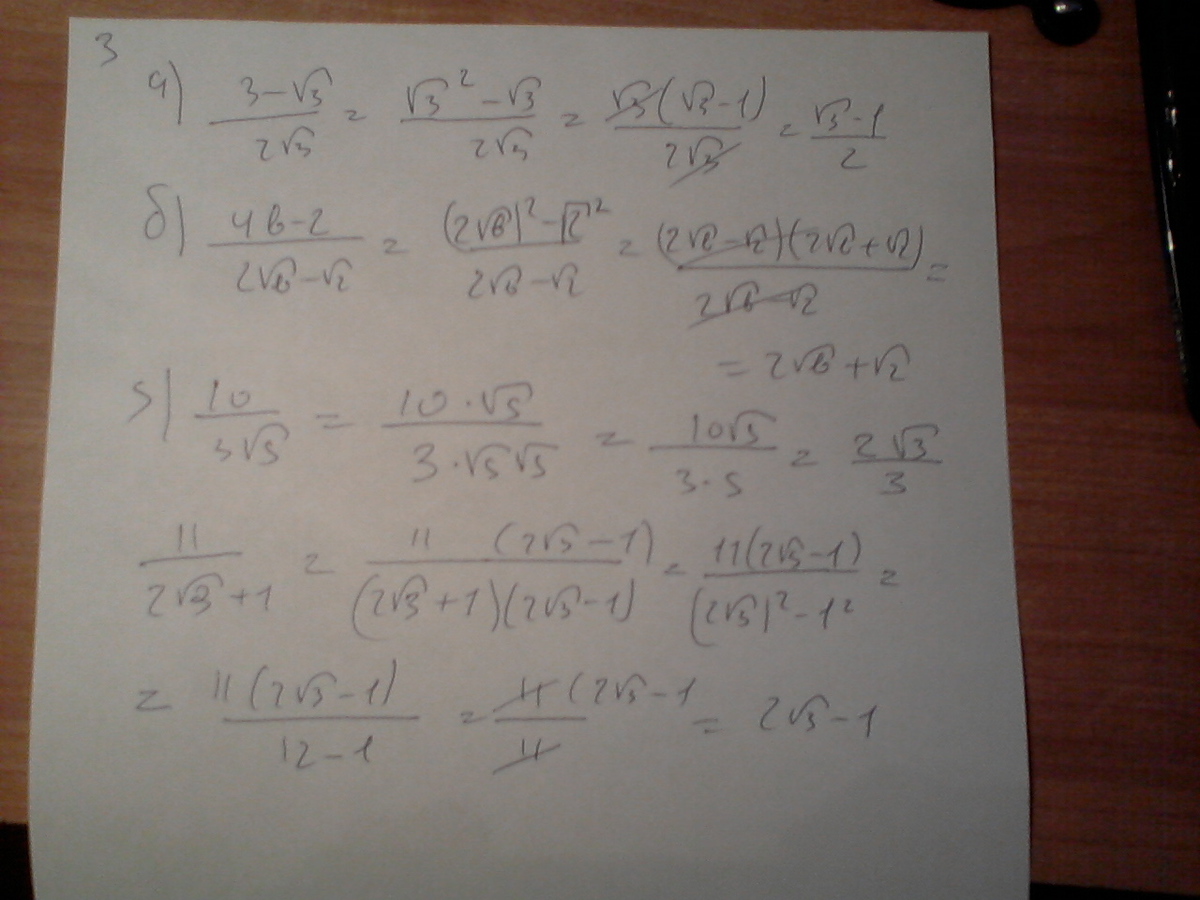 3
а) (3-√3)/(2√3) = (√3² - √3)/(2√3) = (√3(√3-1))/(2√3) = (√3-1)/2
б) (4b-2)/(2√b-√2) = ((2√b)² - √2²)/(2√b-√2) = ((2√b-√2)(2√b+√2))/(2√b-√2) =
= 2√b+√2
5) 10/(3√5) = (10·√5)/(3·√5√5) = (10√5)/(3·5) = (2√5)/3
11/(2√3+1) = (11 (2√3-1))/((2√3+1)(2√3-1)) = (11(2√3-1))/((2√3)²-1²) =
= (11(2√3-1))/(12-1) = (11(2√3-1)/11 = 2√3-1